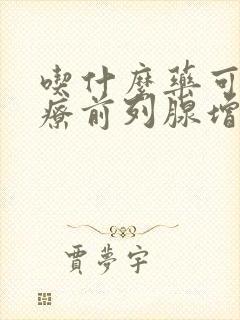 喫什麼藥可
療前列腺增
賈夢宇